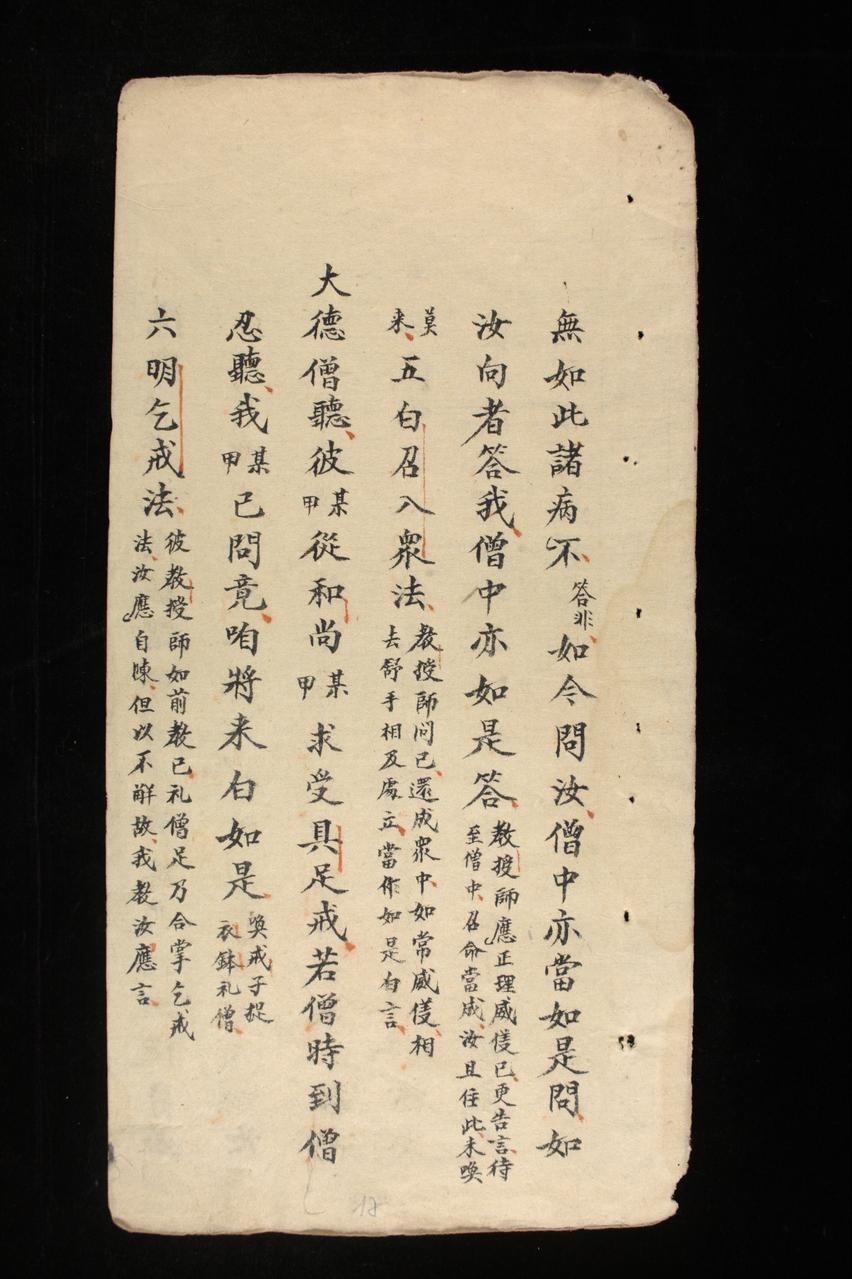 無如此諸病不答非如今問汝僧中亦當如是問如
汝向者答我僧中亦如是答教授師應正理威儀已更告言待至僧中召命當成汝且住此未喚
莫来五白召入衆法教授師问已還成衆中如常威儀相去舒手相及處立當作如是白言
大德僧聽彼某甲從和尚某甲求受具足戒若僧時到僧
忍聽我某甲已問竟咱將来白如是喚戒子捉衣鉢礼僧
六明乞戒法彼教授師如前教已礼僧足乃合掌乞戒法汝應自陳但以不解故我教汝應言